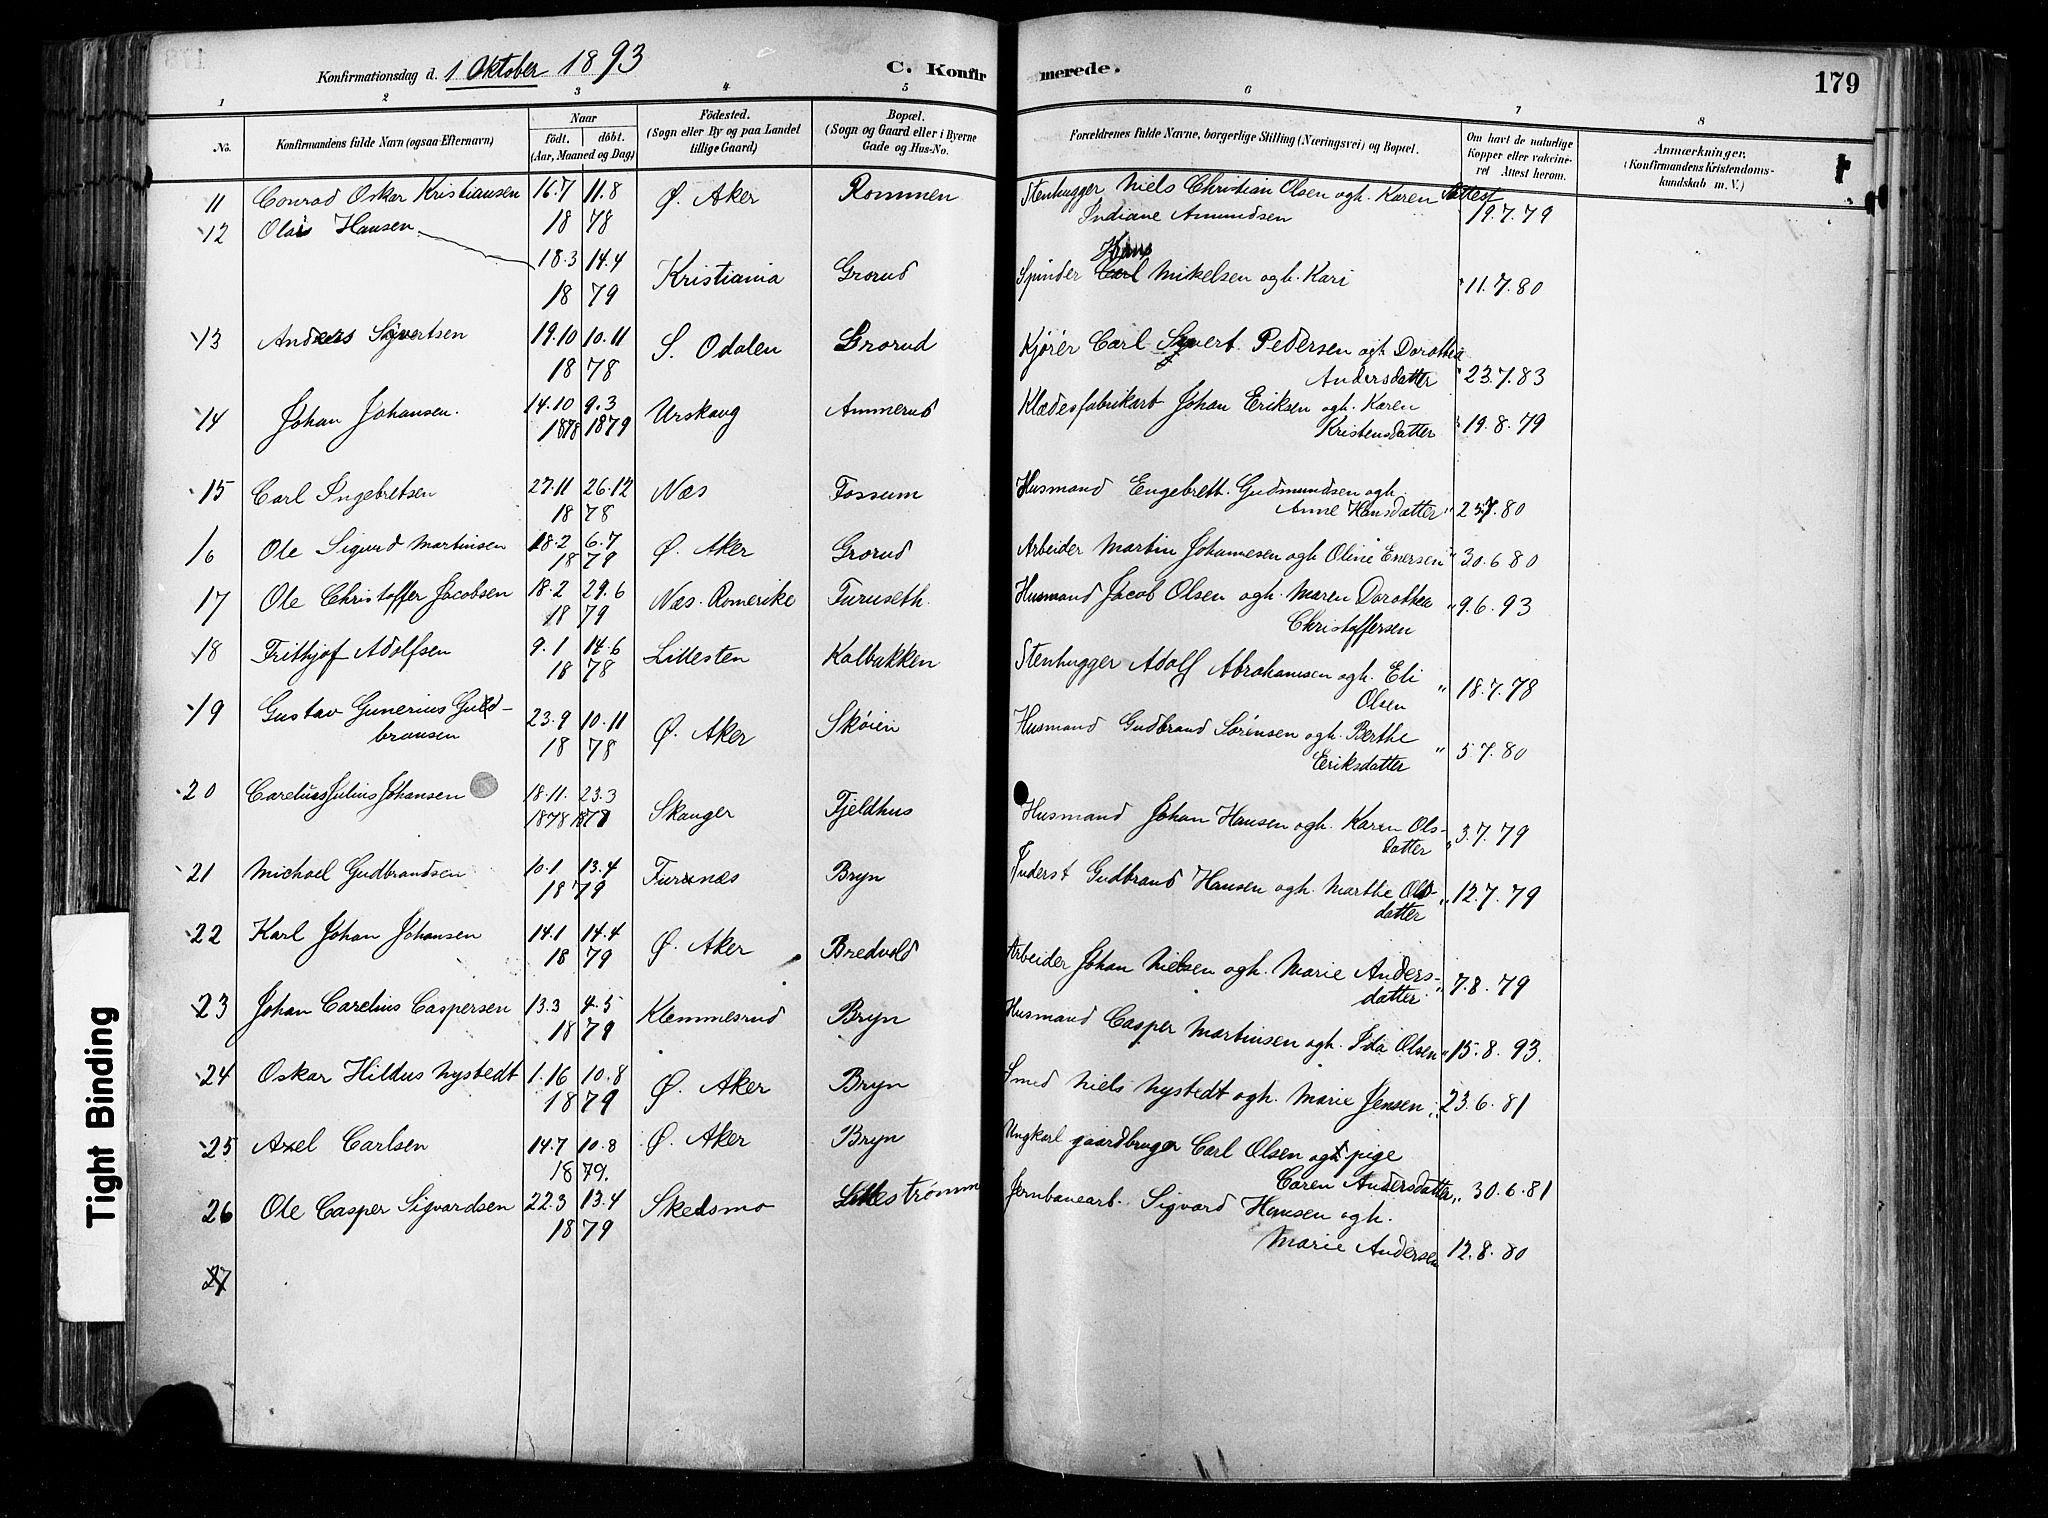 Konfirmationsdag d. 1 Oktober 1893
C. Konfirmerede.
179
1 2 3 4 5 6 7 8
No.
Konfirmandens fulde Navn (ogsaa Efternavn)
Naar
födt. döbt.
(Aar, Maaned og Dag)
Födested.
(Sogn eller By og paa Landet
tillige Gaard)
Bopæl.
(Sogn og Gaard eller i Byerne
Gade og Hus-No.
Forældrenes fulde Navne, borgerlige Stilling (Næringsvei) og Bopæl.
Om havt de naturlige
Kopper eller vakcine-
ret Attest herom.
Anmærkninger.
(Konfirmandens Kristendoms-
kundskab m. V.)
11 Conrad Oskar Kristiansen 16.7 11.8 Ø. Aker Rommen Stenhugger Niels Christian Olsen ogh. Karen Attest
18 78 Indiane Amundsen 19.7.79
12 Olaus Hansen
18.3 14.4 Kristiania Grorud Spinder Hans Mikelsen ogh. Kari " 11.7.80
18 79
13 Anders Sigvertsen 19.10 10.11 S. Odalen Grorud Kjører Carl Sigvert Pedersen ogh Dorothea
18 78 Andersdatter " 23.7.83
14 Johan Johansen. 14.10 9.3 Urskoug Ammerud Klædesfabrikarb Johan Eriksen ogh. Karen
1878 1879 Kristensdatter " 19.8.79
15 Carl Ingebretsen 27.11 26.12 Næs Fossum Husmand Engebreth. Gudmundsen ogh.
18 78 Anne Hansdatter " 25.7.80
16 Ole Sigurd Martinsen 18.2 6.7 Ø. Aker Grorud Arbeider Martin Johannesen ogh Oline Enersen " 30.6.80
18 79
17 Ole Christoffer Jacobsen 18.2 29.6 Næs. Romerike Furuseth. Husmand Jacob Olsen ogh. Maren Dorothea " 9.6.93
18 79 Christoffersen
18 Frithjof Adolfsen 9.1 14.6 Lillesten Kalbakken Stenhugger Adolf Abrahamsen ogh. Eli
18 78 Olsen " 18.7.78
19 Gustav Gunerius Guld-
bransen 23.9 10.11 Ø. Aker Skøien Husmand Gudbrand Sørensen ogh. Berthe
18 78 Eriksdatter " 5.7.80
20 Carelius Julius Johansen 18.11. 23.3 Skauger Fjeldhus Husmand Johan Hansen ogh. Karen Ols-
1878 datter " 3.7.79
21 Michael Gudbrandsen 10.1 13.4 Furunæs Bryn Inderst Gudbrand Hansen ogh. Marthe Ols-
18 79 datter " 12.7.79
22 Karl Johan Johansen 14.1 14.4 Ø. Aker Bredvold Arbeider Johan Nielsen ogh. Marie Anders-
18 79 datter " 7.8.79
23 Johan Carelius Caspersen 13.3 4.5 Klemmesrud Bryn Husmand Casper Martinsen ogh. Ida Olsen " 15.8.93.
18 79
24 Oskar Hildus Nystedt 1.16 10.8 Ø. Aker Bryn Smed Niels Nystedt ogh. Marie Jensen " 23.6.81
18 79
25 Axel Carlsen 14.7 10.8 Ø. Aker Bryn Ungkarl gaardbruger Carl Olsen og pige
18 79. Caren Andersdatter " 30.6.81
26 Ole Casper Sigvardsen 22.3 13.4 Skedsmo Lillestrømm Jernbanearb. Sigvard Hansen ogh.
18 79 Marie Andersen 12.8.80
27
Tight Binding